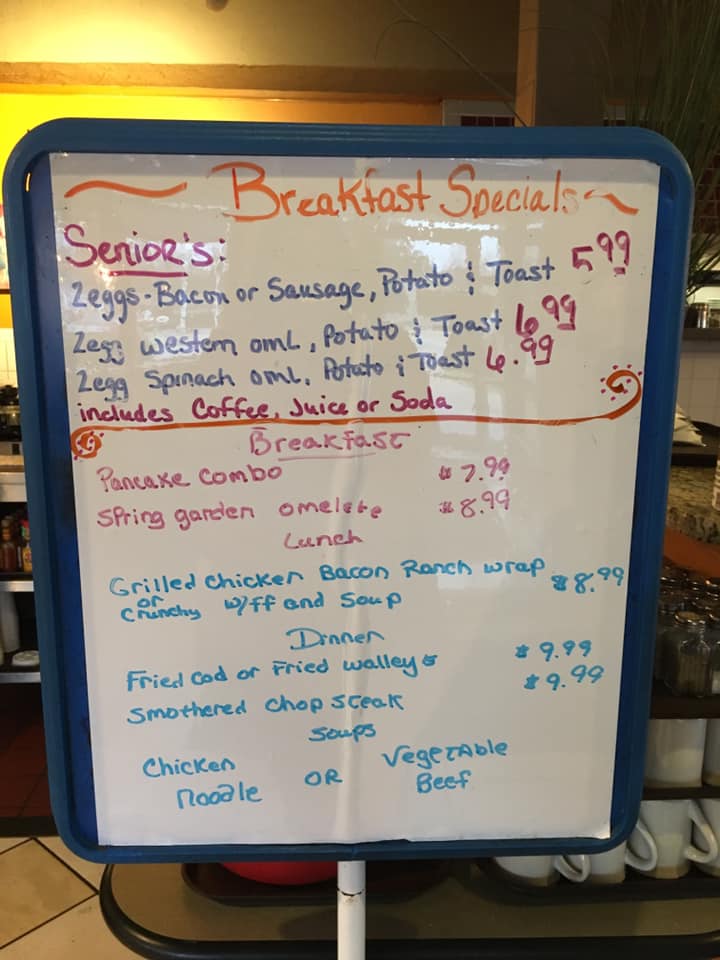 Breakfast Specials
Senior's:
2eggs-Bacon or Sausage, Potato & Toast 5.99
2egg western oml, Potato & Toast 6.99
2egg Spinach oml, Potato & Toast 6.99
includes Coffee, Juice or Soda
Breakfast
Pancake Combo $7.99
Spring garden omelete $8.99
Lunch
Grilled Chicken Bacon Ranch wrap $8.99
or
Crunchy w/ff and Soup
Dinner
Fried Cod or Fried walleys $9.99
Smothered Chop Steak $9.99
Soups
Chicken Noodle OR Vegetable Beef